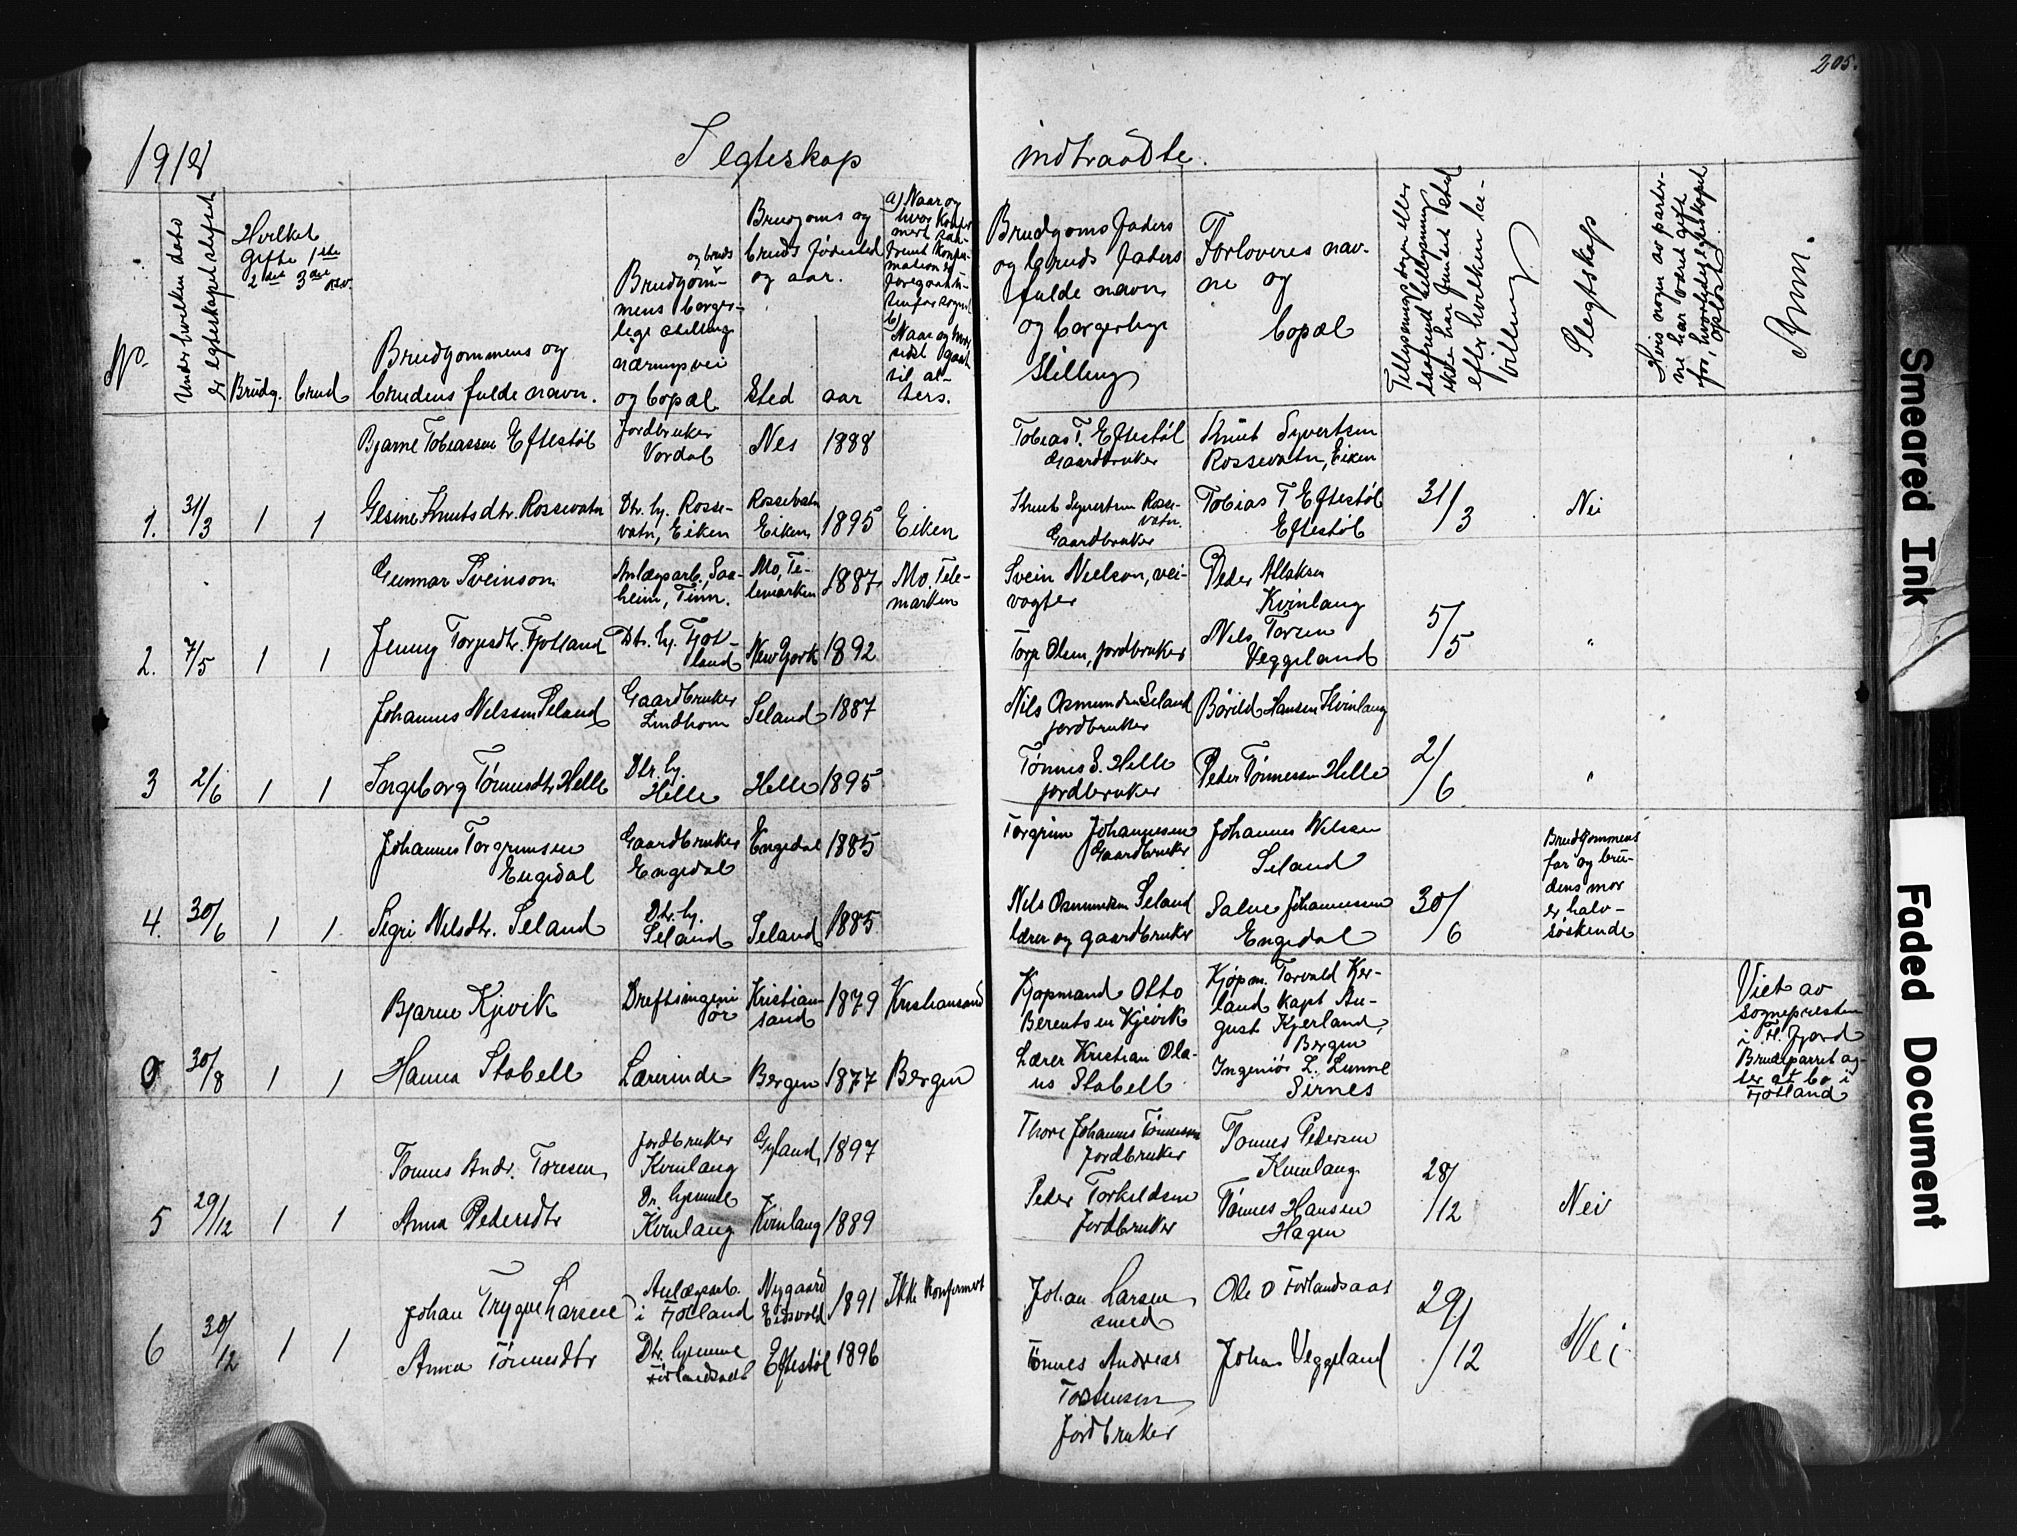 205.
1918
I egteskap indtraadte.
No.
Under hvilken dato er egteskapet sluttet
Hvilket
gifte 1ste
2det 3die osv.
Brudg. brud
Brudgommens og
brudens fulde navn.
og bruds
Brudgom-
mens borger-
lige stilling
næringsvei
og bopæl
Brudgoms og
bruds fødested
og aar.
Sted aar
a) Naar og
b)
til al-
ters.
Brudgoms faders
og bruds faders
fulde navn
og borgerlige
stilling
Forloveres nav-
ne og
bopæl
Slegtskap
Anm.
Bjarne Tobiassen Eftestøl
Jordbruker
Nes 1888
Tobias T. Eftestøl
Gaardbruker
Knut Syvertsen
Rossevatn, Eiken
1. 31/3 1 1
Gesine Knutsdtr. Rossevatn
Dtr. hj. Rosse-
vatn, Eiken
Rossevatn
Eiken 1895
Eiken
Knut Syvertsen Rosse-
vatn.
Gaardbruker
Tobias T Eftestøl
Eftestøl
31/3
Nei
Gunnar Sveinson
Anlægsarb. Saa-
heim, Tinn.
Mo, Te-
lemarken 1887
Mo, Tele-
marken
Svein Nielson, vei-
vogter
Peder Atlaksen
Kvinlaug
2. 7/5 1 1
Jenny Torjesdtr. Fjotland
Dtr. hj. Fjot-
land
New York 1892
Torje Olsen, jordbruker
Nils Toresen
Veggeland
5/5
"
Johannes Nilssen Seland
Gaardbruker
Lindhom
Seland 1887
Nils Osmundsen Seland
jordbruker
Bårild Hansen Kvinlaug
3 2/6 1 1
Ingeborg Tønnesdtr Helle
Dtr. hj.
Helle
Helle 1895
Tønnes S. Helle
jordbruker
Peder Tønnessen Helle
2/6
"
Johannes Torgrimsen
Engedal
Gaardbruker
Engedal
Engedal 1885
Torgrim Johannesen
Gaardbruker
Johannes Nilssen
Seland
Brudgommens
far og bru-
dens mor
er halv-
søskende
4. 30/6 1 1
Sigri Nilsdtr. Seland
Dtr. hj.
Seland
Seland 1885
Nils Osmundsen Seland
lærer og gaardbruker
Salve Johannessen
Engedal
30/6
Bjarne Kjevik
Driftsingeni
ør
Kristian-
sand 1879
Kristiansand
Kjøpmand Otto
Berentsen Kjevik
Kjøpm. Torvald Kjer-
land kapt Au-
gust Kjerland,
Bergen
Viet av
sognepresten
i Fl. Fjord
Brudeparret ag-
ter at bo i
Fjotland
0 30/8 1 1
Hanna Stabell
Lærerinde
Bergen 1877
Bergen
Lærer Kristian Ola-
us Stabell
Ingeniør L. Lunne
Sirnes
Tønnes Andr. Toresen
Jordbruker
Kvinlaug
Gyland 1897
Thore Johannes Tønnessen
Jordbruker
Tønnes Pedersen
Kvinlaug
5 29/12 1 1
Anna Pedersdtr
Dr. hjemme
Kvinlaug
Kvinlaug 1889
Peder Torkildsen
Jordbruker
Tønnes Hansen
Hagen
28/12
Nei
Johan Trygve Larsen
Anlægsarb.
i Fjotland
Nygaard
Eidsvold 1891
Ikke konfirmert
Johan Larsen
smed
Ole O Fotlandsaas
29/12
6 30/12 1 1
Anna Tønnesdtr
Dtr. hjemme
Eftestøl 1896
Tønnes Andreas
Torstensen
Jordbruker
Johan Veggeland
Nei
Smeared Ink
Faded Document